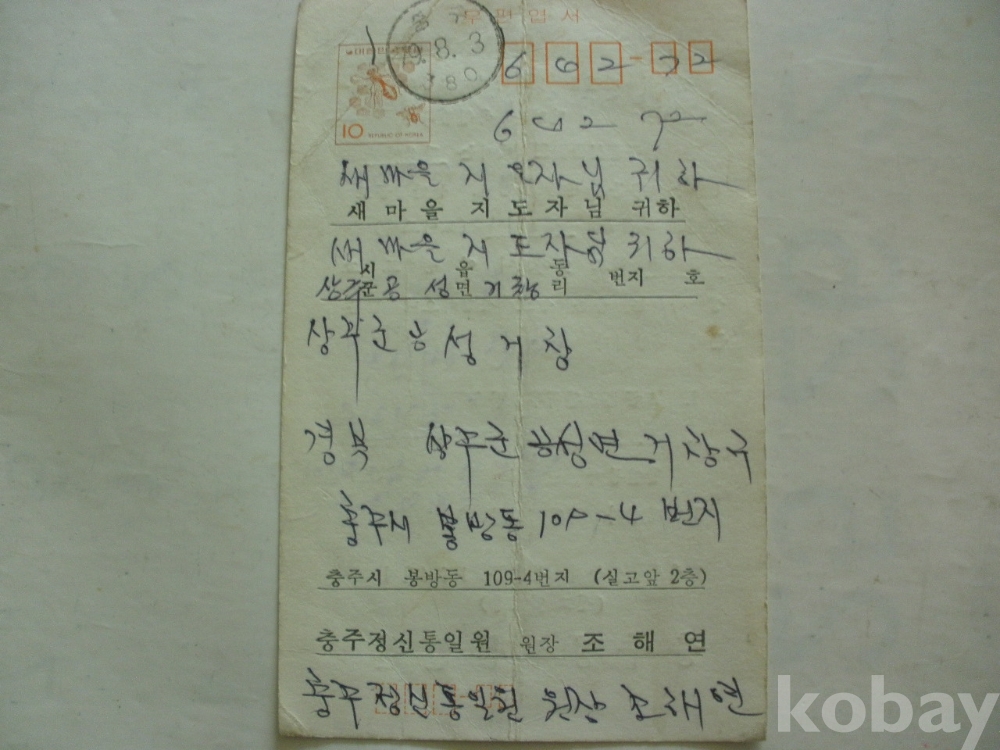 우편엽서
79.8.3
380
대한민국
10 REPUBLIC OF KOREA
6 4 2 - 7 2
6 4 2 7 2
새마을 지도자님 귀하
새마을 지도자님 귀하
새마을 지도자님 귀하
시 읍 동
상주군 공성면 거창리 번지 호
상주군 공성 거창
경북 상주군 공성면 거창구
충주시 봉방동 109-4 번지
충주시 봉방동 109-4번지 (실고앞 2층)
충주정신통일원 원장 조해연
충주정신통일원 원장 조해연
kobay